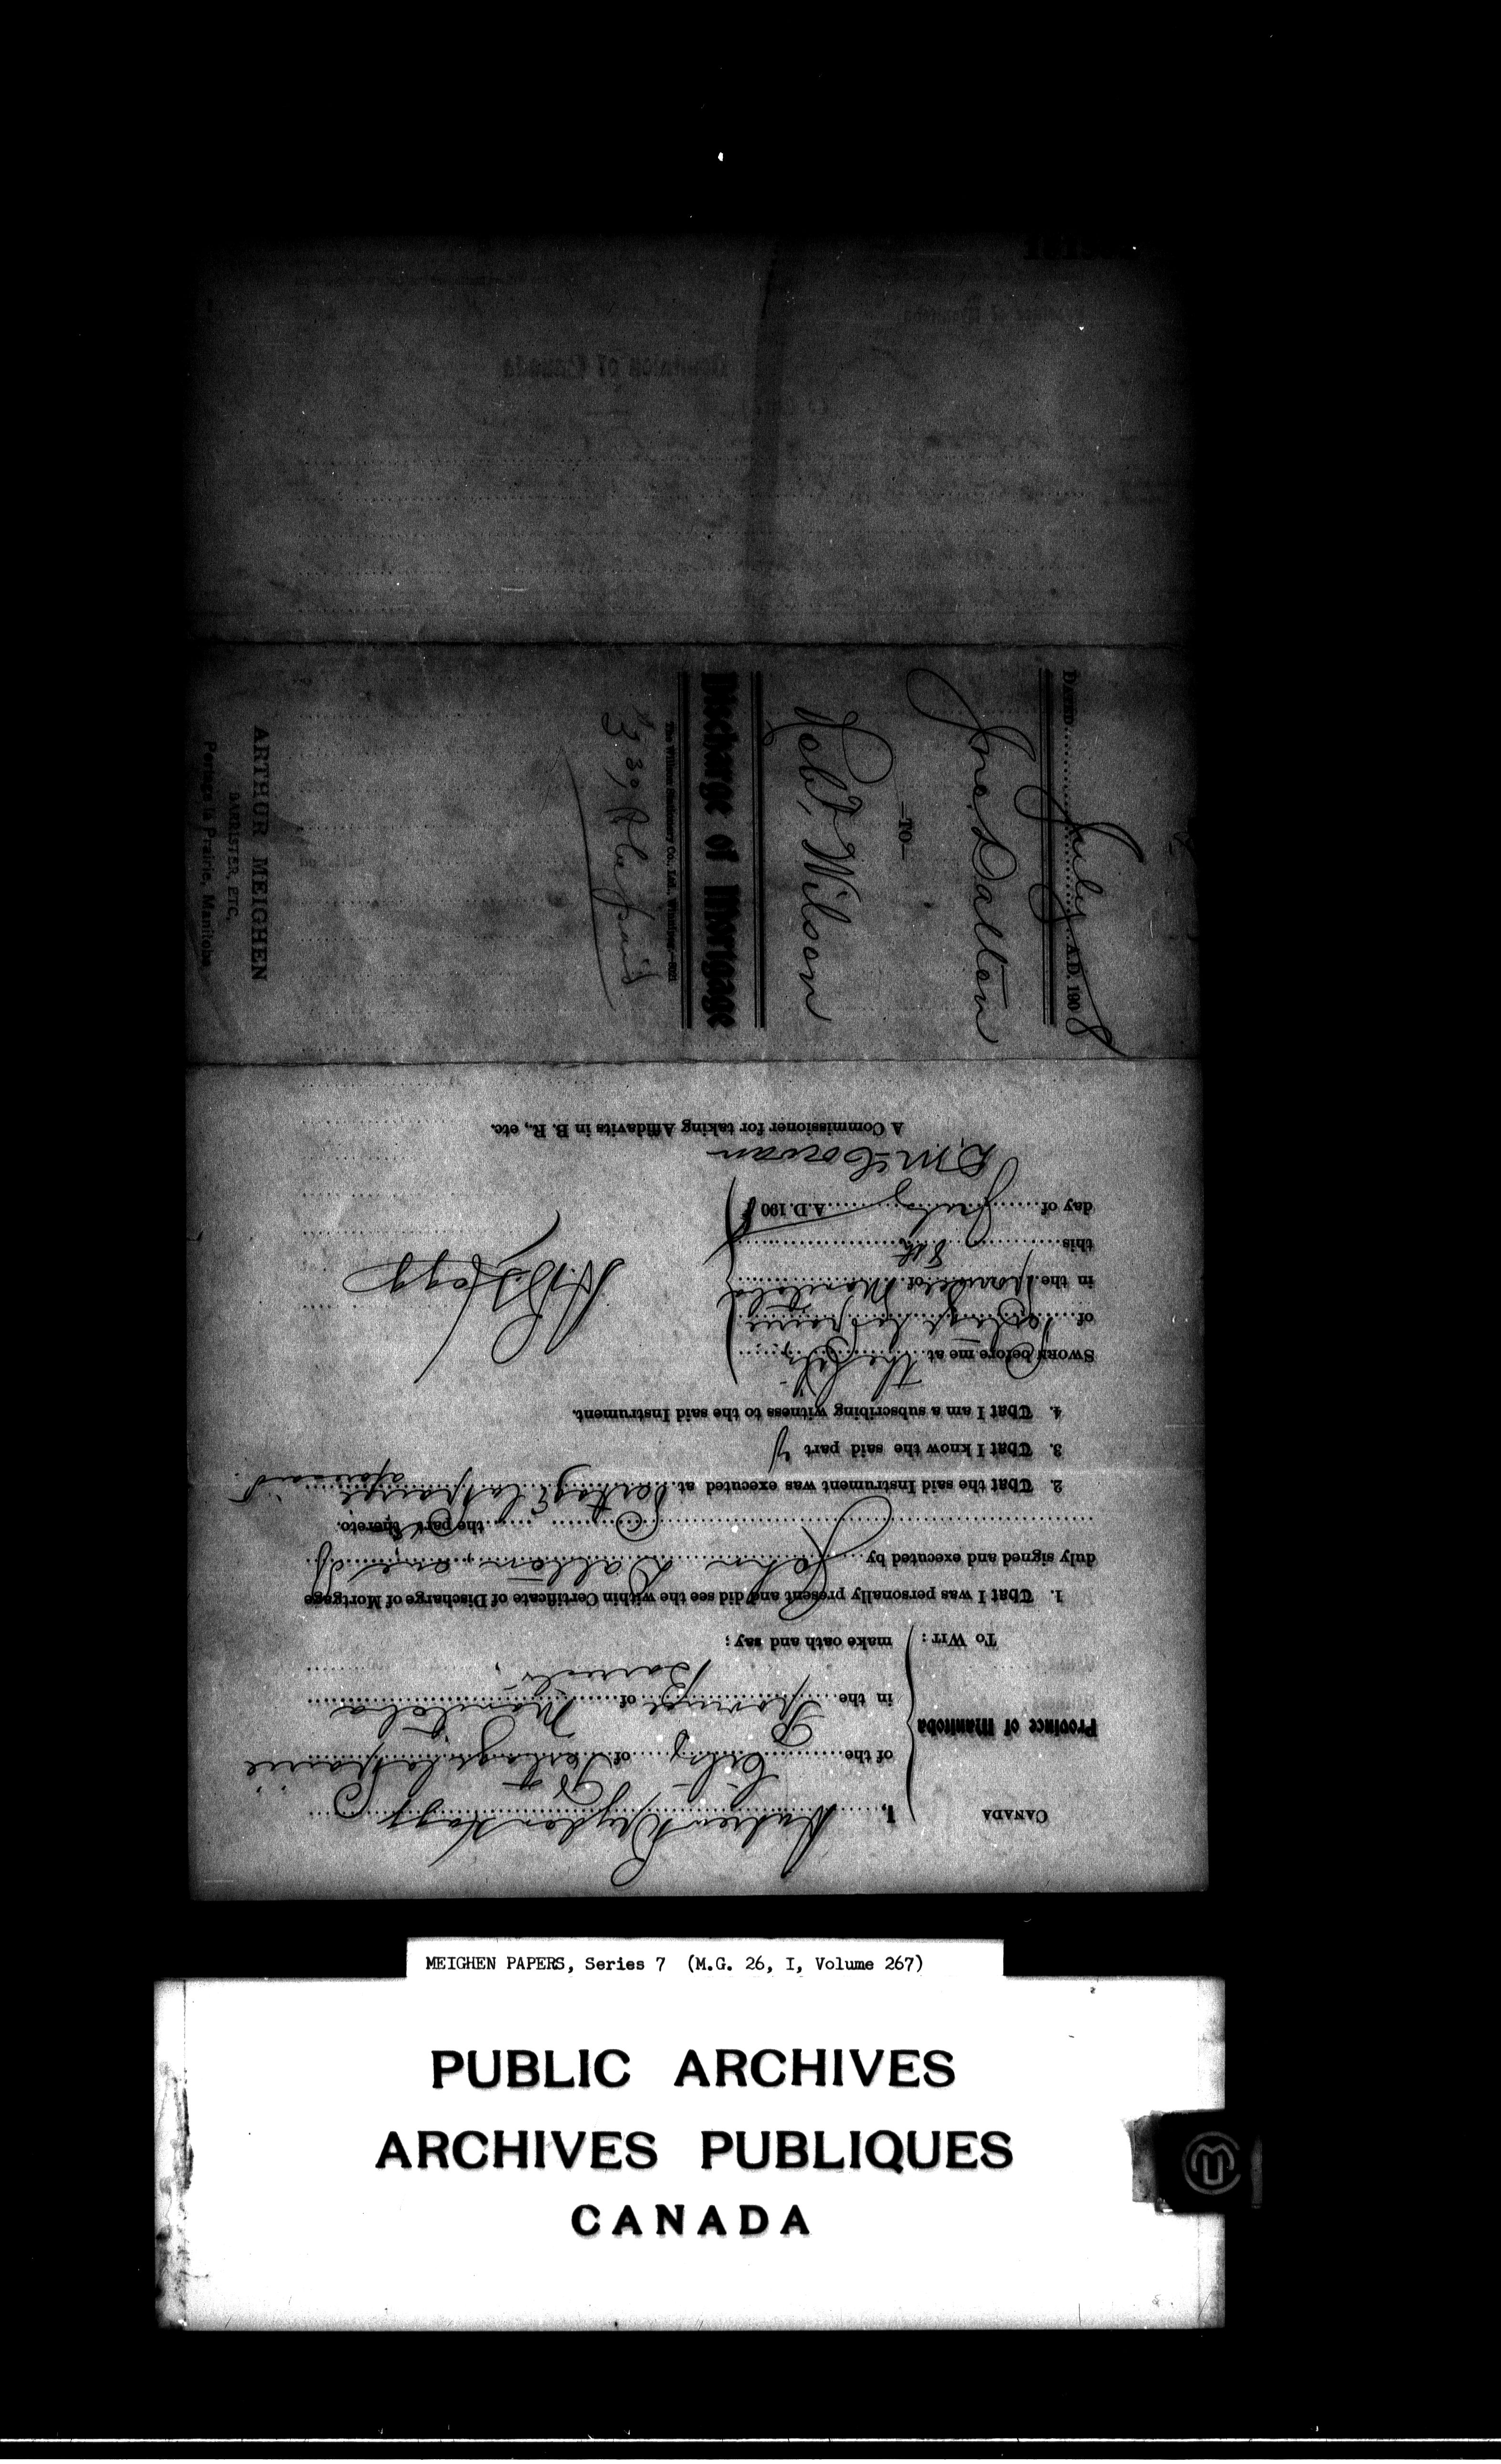 CANADA
Province of Manitoba
To Wit:
I, Andrew Dryden Hogg
of the City of Portage la Prairie
in the Province of Manitoba
Barrister,
make oath and say;
1. That I was personally present and did see the within Certificate of Discharge of Mortgage
duly signed and executed by John Dalton, one of
the part thereto.
2. That the said Instrument was executed at Portage la Prairie aforesaid
3. That I know the said part y
4. That I am a subscribing witness to the said Instrument.
SWORN before me at the City
of Portage la Prairie
in the Province of Manitoba
this 8th
day of July A.D. 190 8
A. D. Hogg
A Commissioner for taking Affidavits in B. R., etc.
DATED July A.D. 190 8
Jno. Dalton
—TO—
Robt. Wilson
Discharge of Mortgage
The Willson Stationery Co., Ltd., Winnipeg
ARTHUR MEIGHEN
BARRISTER, ETC.
Portage la Prairie, Manitoba
Dominion of Canada
MEIGHEN PAPERS, Series 7 (M.G. 26, I, Volume 267)
PUBLIC ARCHIVES
ARCHIVES PUBLIQUES
CANADA